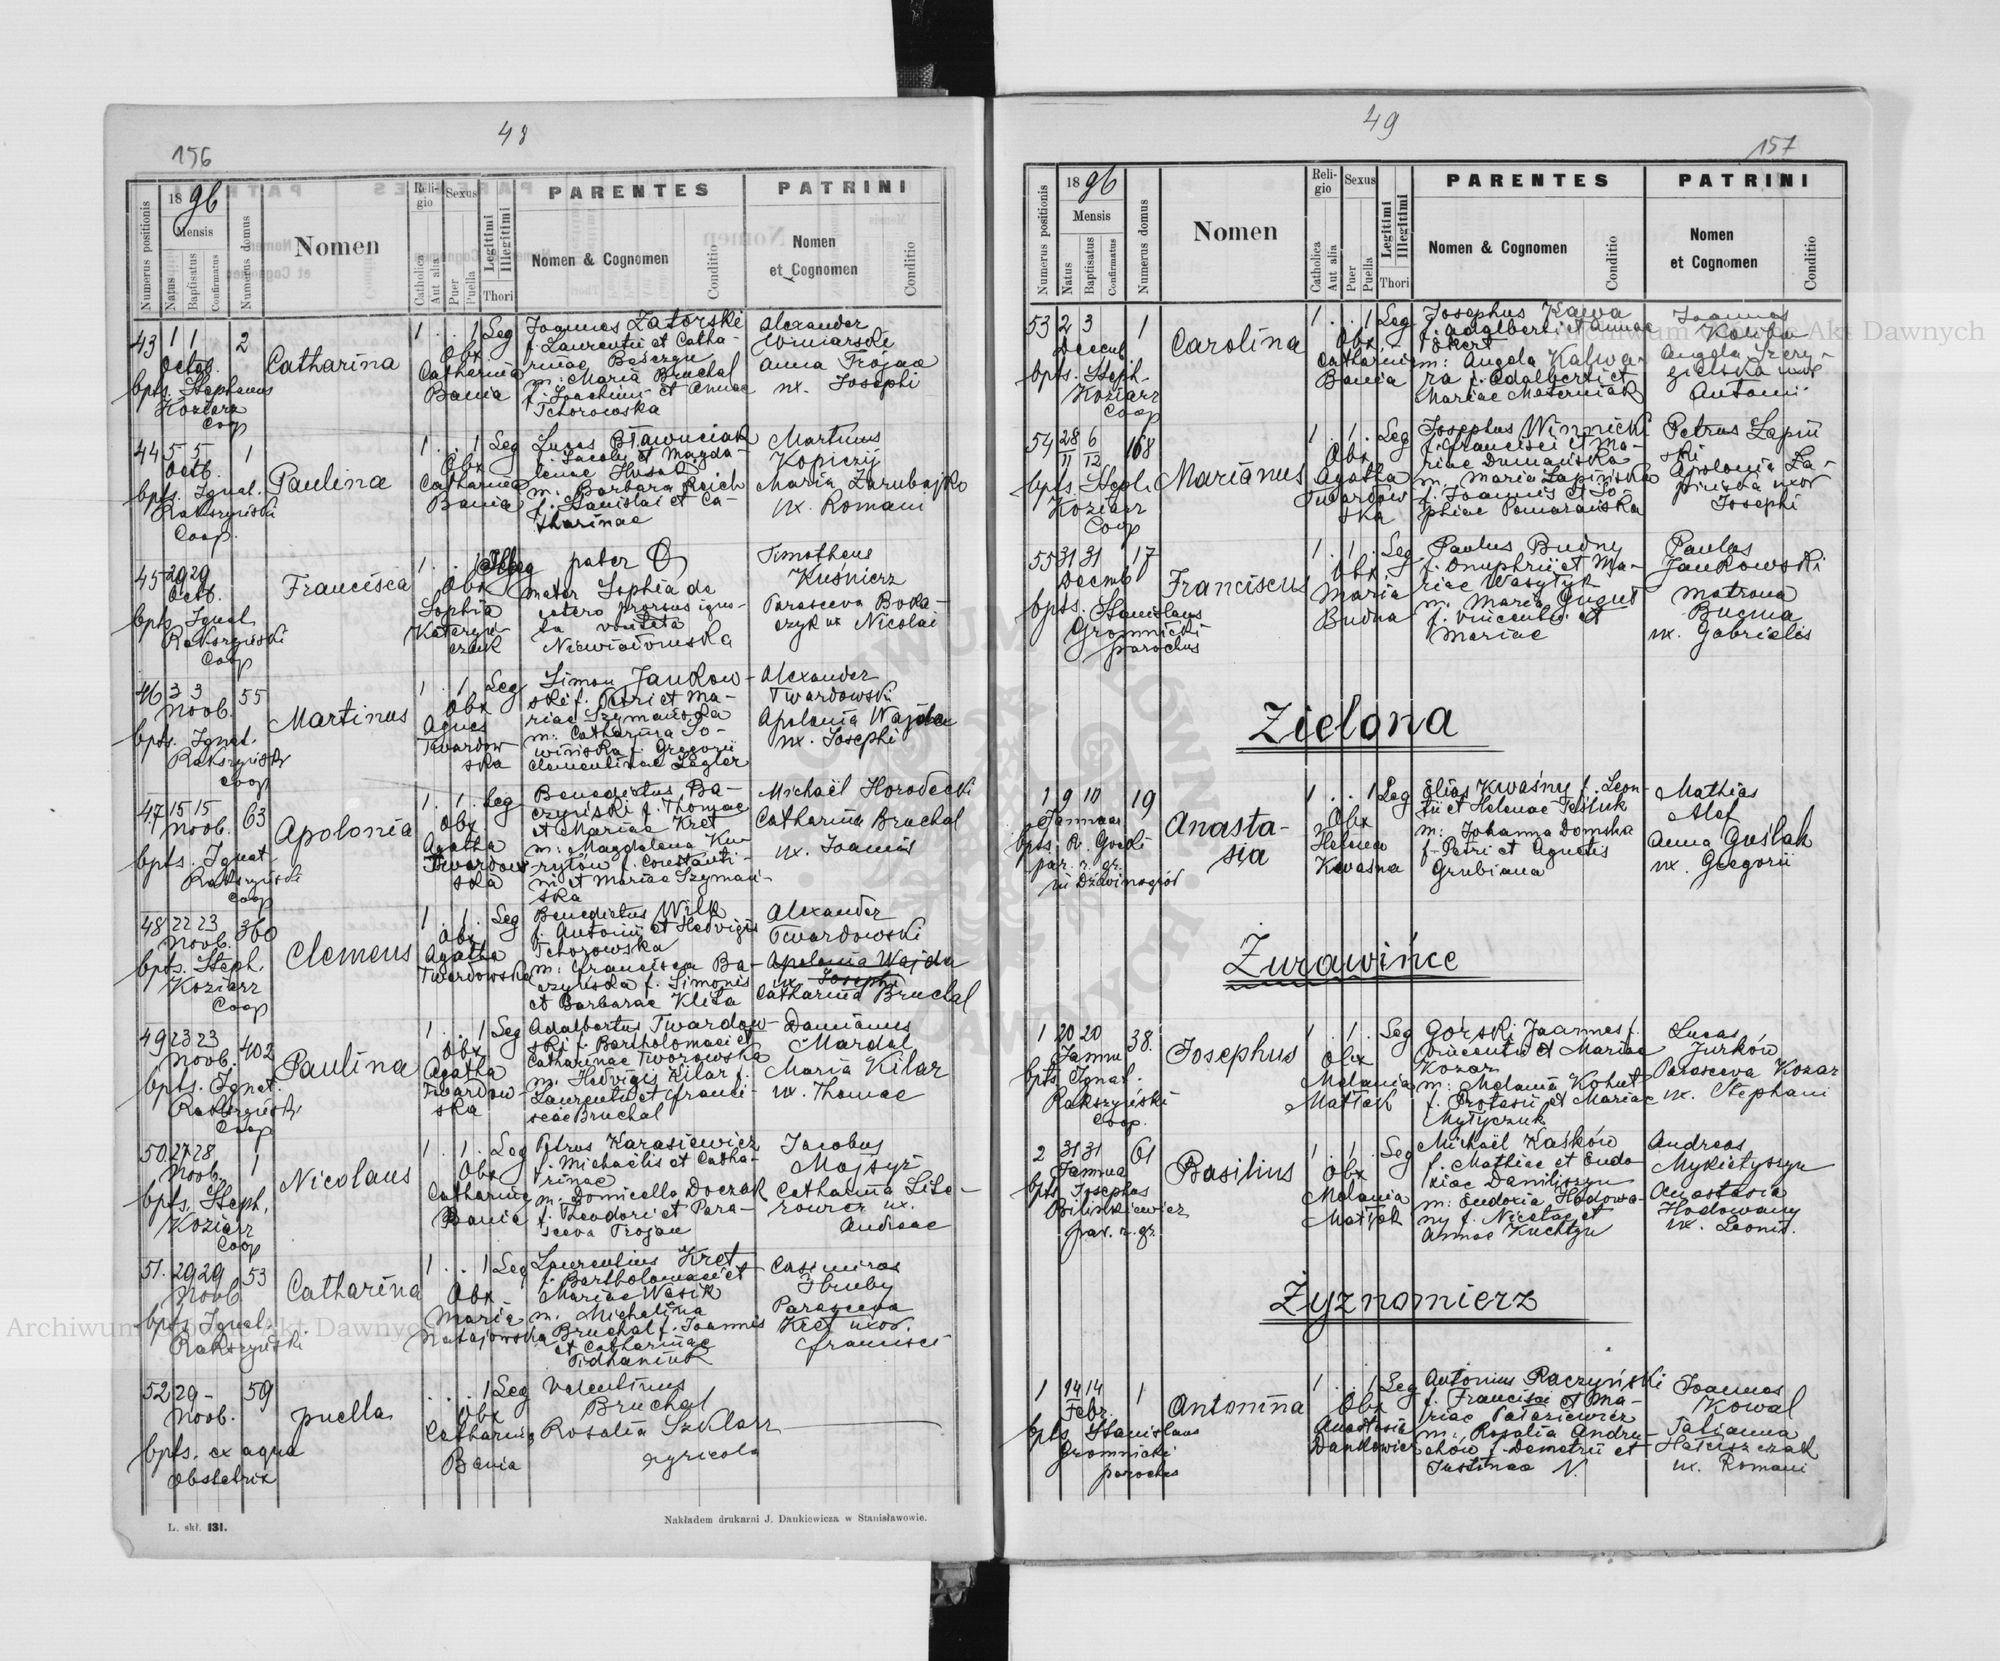 48
156
Numerus positionis
1896
Mensis
Natus
Baptisatus
Confirmatus
Numerus domus
Nomen
Religio
Catholica
Aut alia
Sexus
Puer
Puella
Legitimi
Illegitimi
Thori
PARENTES
Nomen & Cognomen
Conditio
PATRINI
Nomen
et Cognomen
Conditio
43 1 1 2
Octob.
bpts. Stephanus
Koziarz
Coop
Catharina
1 . . 1 Leg
Obx
Catharina
Bania
Joannes Zatorski
f. Laurentii et Catha-
rinae
m: Maria Bruchal
f. Joachimi et Annae
Tchorowska
Alexander
Winiarski
Anna Trojan
ux. Josephi
44 5 5 1
Octb.
bpts. Ignat.
Rakszyński
Coop.
Paulina
1 . . 1 Leg
Obx
Catharina
Bania
Lucas Bławuciak
f. Jacobi et Magda-
lenae Husak
m. Barbara Reich
f. Stanislai et Ca-
tharinae
Martinus
Kopiczij
Maria Zarubajko
ux. Romani
45 29 29
Octb.
bpts. Ignat.
Rakszyński
Coop
Francisca
1 . . 1 Illeg
Obx
Sophia
Kataryn-
czuk
pater O
mater Sophia de
cetero prorsus igno-
ta
Timotheus
Kuśnierz
Parasceva Boka-
czyk ux Nicolai
46 3 3 55
Novb.
bpts. Ignat.
Rakszyński
Coop
Martinus
1 . 1 . Leg
Obx
Agnes
Twardow
ska
Simon Jankow-
ski f. Petri et Ma-
riae Szymańska
m: Catharina So-
wińska f. Gregorii
Clementinae Legler
Alexander
Twardowski
Apolonia Wajda
ux. Josephi
47 15 15 63
Novb.
bpts. Ignat.
Rakszyński
Coop
Apolonia
1 . 1 . Leg
Obx
Agatha
Twardow-
ska
Benedictus Ba-
czyński f. Thomae
et Mariae Kret
m: Magdalena Kur-
rytów f. Constanti-
ni et Mariae Szymań-
ska
Michaël Horodecki
Catharina Bruchal
ux. Joannis
48 22 23 360
Novb.
bpts. Steph.
Koziarz
Coop
Clemens
1 . 1 . Leg
Obx
Agatha
Twardowska
Benedictus Wilk
f. Antonii et Hedvigis
Tchorowska
m: Francisca Ba-
czyńska f. Simonis
et Barbarae Klita
Alexander
Twardowski
Apolonia Wajda
ux. Josephi
Catharina Bruchal
49 23 23 402
Novb.
bpts. Ignat.
Rakszyński
Coop
Paulina
1 . . 1 Leg
Obx
Agatha
Twardow-
ska
Adalbertus Twardow-
ski f. Bartholomaei et
Catharinae Tworowska
m. Hedvigis Kilar f.
Laurentii et Franci-
scae Bruchal
Damianus
Mardal
Maria Kilar
ux. Thomae
50 27 28 1
Novb.
bpts. Steph.
Koziarz
Coop
Nicolaus
1 . 1 . Leg
Obx
Catharina
Bania
Petrus Karasiewicz
f. Michaëlis et Catha-
rinae
m. Domicella Doczak
f. Theodori et Para-
sceva Trojan
Jacobus
Mojsyz
Catharina Lite-
rowicz ux.
Andreae
51. 29 29 53
Novb
bpts. Ignat.
Rakszyński
Catharina
1 . . 1 Leg
Obx
Maria
Matajowska
Laurentius Kret
f. Bartholomaei et
Mariae Wasik
m. Michalina
Bruchal f. Joannis
et Catharinae
Pidhaniuk
Casimirus
Hruby
Parasceva
Kret uxor.
Francisci
52 29 - 59
Novb.
bpts. ex aqua
obstetrix
puella
. . . 1 Leg
Obx
Catharina
Bania
Valentinus
Bruchal
Rosalia Szklarz
agricola
L. skł. 131.
Nakładem drukarni J. Dankiewicza w Stanisławowie.
49
157
Numerus positionis
1896
Mensis
Natus
Baptisatus
Confirmatus
Numerus domus
Nomen
Religio
Catholica
Aut alia
Sexus
Puer
Puella
Legitimi
Illegitimi
Thori
PARENTES
Nomen & Cognomen
Conditio
PATRINI
Nomen
et Cognomen
Conditio
53 2 3 1
Decemb.
bpts. Steph.
Koziarz
Coop
Carolina
1 . . 1 Leg
Obx.
Catharina
Bania
Josephus Kawa
f. Adalberti et Annae
Okert
m: Angela Kalwa-
ra f. Adalberti et
Mariae Materniak
Joannes
Kawa
Angela
uxor
Antonii
54 28 6 168
11 12
bpts. Steph.
Koziarz
Coop
Marianus
1 . 1 . Leg
Obx
Agatha
Twardow
ska
Josephus Winnicki
f. Francisci et Ma-
riae Dumańska
m. Maria Łapińska
f. Joannis et So-
phiae Pomarańska
Petrus Łapiń
ski
Apolonia Ła-
pińska uxor
Josephi
55 31 31 17
Decemb
bpts. Stanislaus
Gromnicki
parochus
Franciscus
1 . 1 . Leg
Obx
Maria
Budna
Paulus Budny
f. Onuphrii et Ma-
riae Wasylyk
m. Maria Gugul
f. Vincentii et
Mariae
Paulus
Jankowski
Matrona
Bucma
ux. Gabrielis
Zielona
1 9 10 19
Januar.
bpts. R. Gorcki
par. r. gr.
in Dźwinogród
Anasta-
sia
1 . . 1 Leg
Obx
Helena
Kwasna
Elias Kwaśny f. Leon-
tii et Helenae Feśluk
m: Johanna Domska
f. Petri et Agnetis
Grubiana
Mathias
Alef
Anna Guślak
ux. Gregorii
Żurawińce
1 20 20 38.
Janua
bpts. Ignat.
Rakszyński
Coop.
Josephus
1 . 1 . Leg
Obx
Melania
Matíak
Górski Joannes f.
Vincentii et Mariae
Kozar
m: Melania Kohut
f. Protasii et Mariae
Mytyczuk
Lucas
Jurków
Parasceva Kozar
ux. Stephani
2 31 31 61
Janua
bpts. Josephus
Bilinkiewicz
par. r. gr.
Basilius
1 . 1 . Leg
Obx
Melania
Matíak
Michaël Kaśków
f. Mathiae et Eudo-
xiae Daniliszyn
m: Eudoxia Hodowa-
ny f. Nicetae et
Annae Kuchtyn
Andreas
Mykietyszyn
Anastasia
Hodowany
ux. Leonis.
Żyznomierz
1 14 14 1
Febr.
bpts. Stanislaus
Gromnicki
parochus
Antonina
1 . . 1 Leg
Obx
Anastasia
Dankowicz
Antonius Raczyński
f. Francisci et Ma-
riae Pałasiewicz
m: Rosalia Andru-
chów f. Demetrii et
Justinae N.
Joannes
Kowal
Tatianna
Hałuszczak
ux. Romani
Archiwum Główne Akt Dawnych